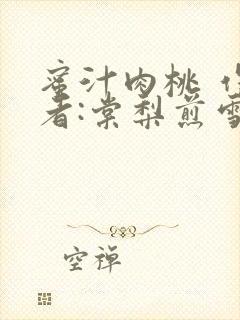 蜜汁肉桃
者:棠梨煎雪
空禅